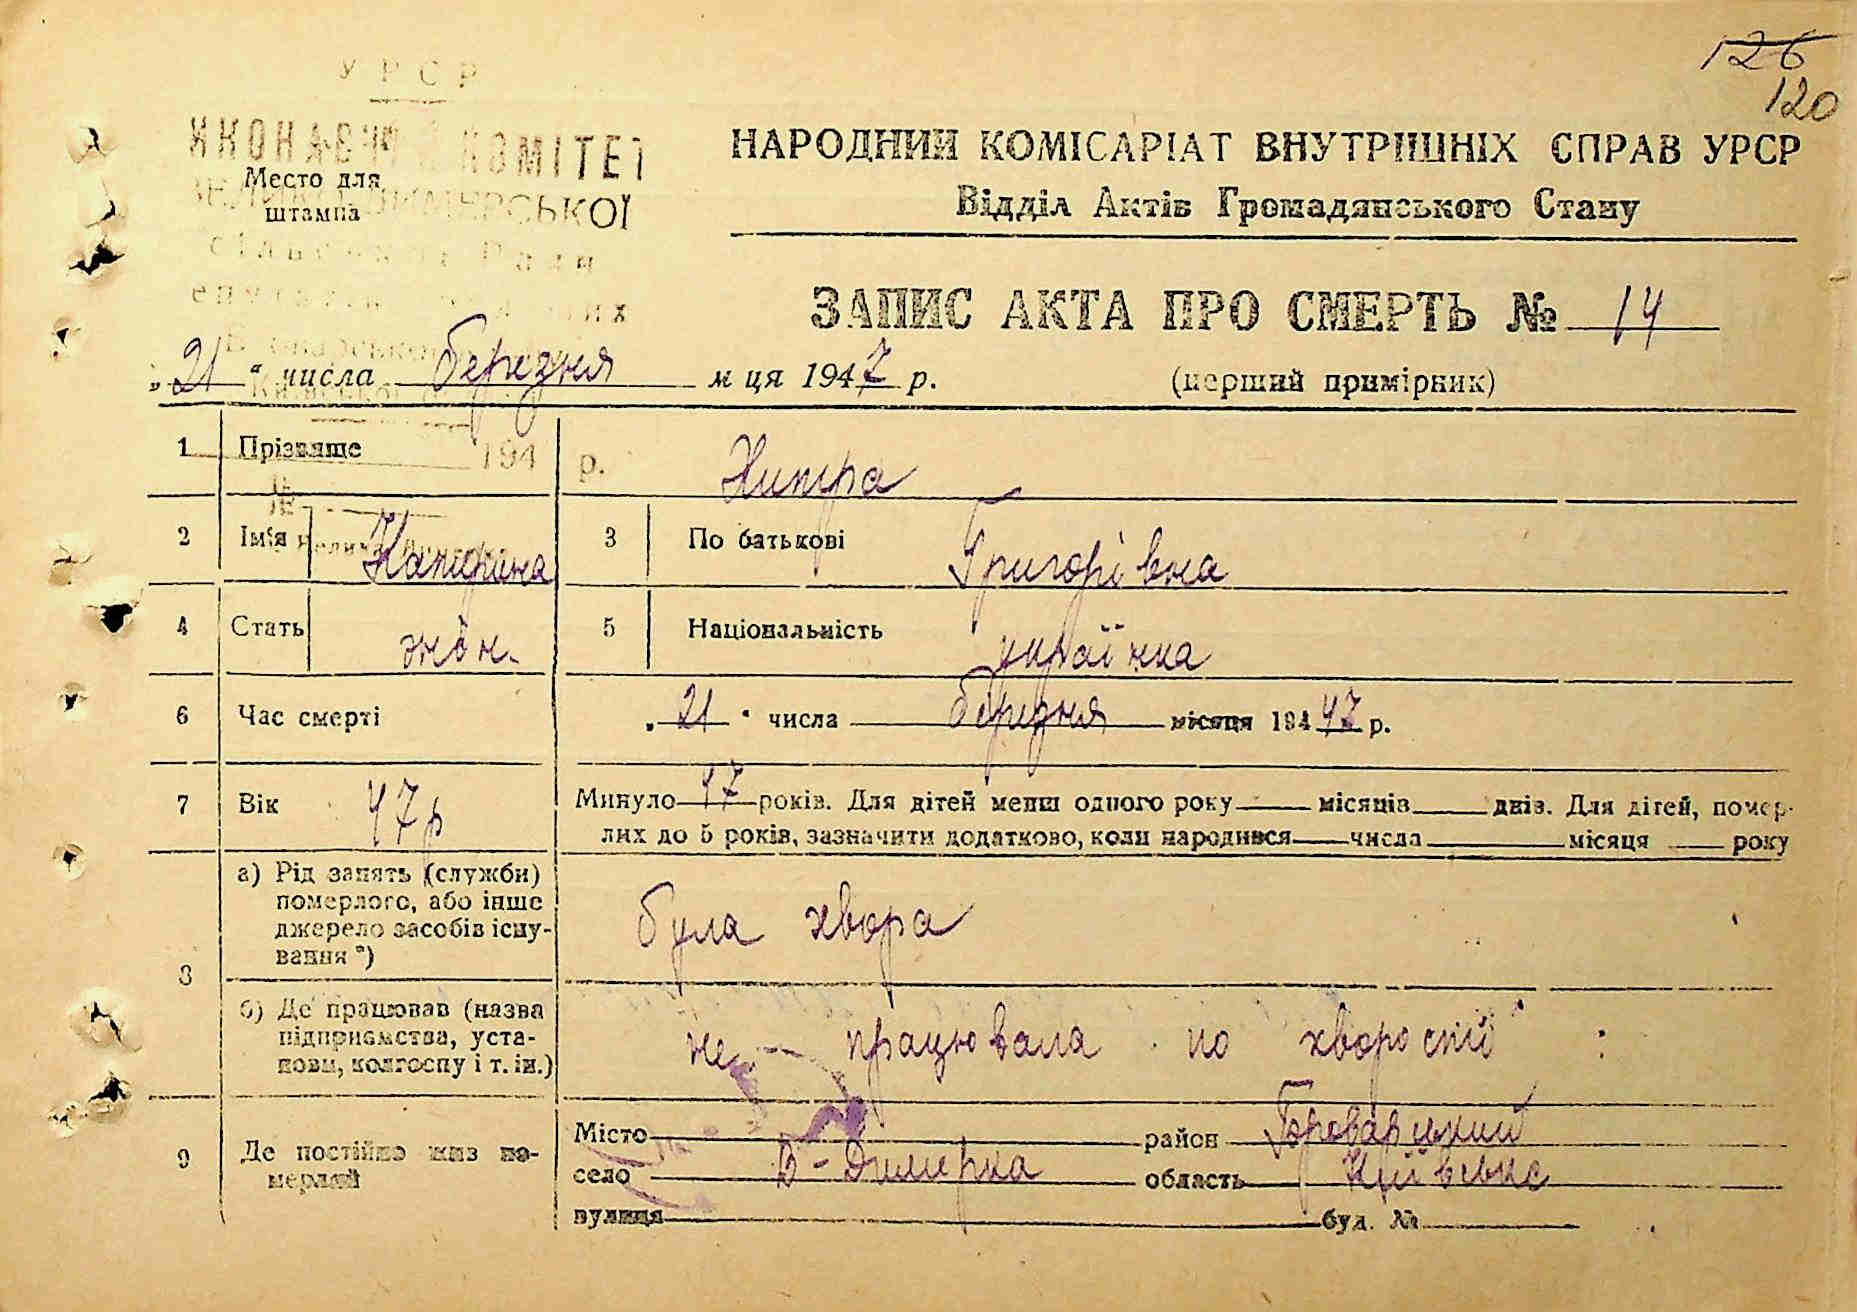 126
120
УРСР
ИКОНАВЧ КОМІТЕТ
Место для
штампа
ДИМЕРСЬКОЇ
НАРОДНИЙ КОМІСАРІАТ ВНУТРІШНІХ СПРАВ УРСР
Відділ Актів Громадянського Стану
ЗАПИС АКТА ПРО СМЕРТЬ № 14
„21" числа березня м ця 1947 р.
(перший примірник)
194 р.
1 Прізвище
2 Ім'я Катерина 3 По батькові Григорівна
4 Стать жін. 5 Національність українка
6 Час смерті „21" числа березня місяця 194 47 р.
7 Вік 47 р Минуло 47 років. Для дітей менш одного року місяців днів. Для дітей, помер-
лих до 5 років, зазначити додатково, коли народився числа місяця року
8 а) Рід занять (служби)
померлого, або інше
джерело засобів існу-
вання *)
була хвора
б) Де працював (назва
підприємства, уста-
нови, колгоспу і т. ін.)
не працювала по хворости
9 Де постійно жив по-
мерлий
Місто район Броварський
село В-Димерка область Київська
вулиця буд. №